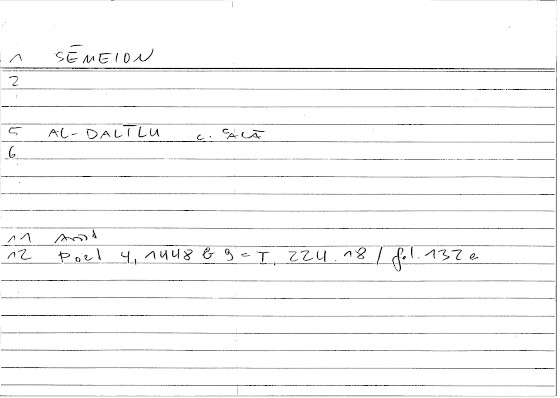 1 SĒMEION
2
5 AL-DALĪLU c. ʿALĀ
6
11 Arist
12 Poet 4, 1448 b 9 = T, 224.18 / fol. 132 a